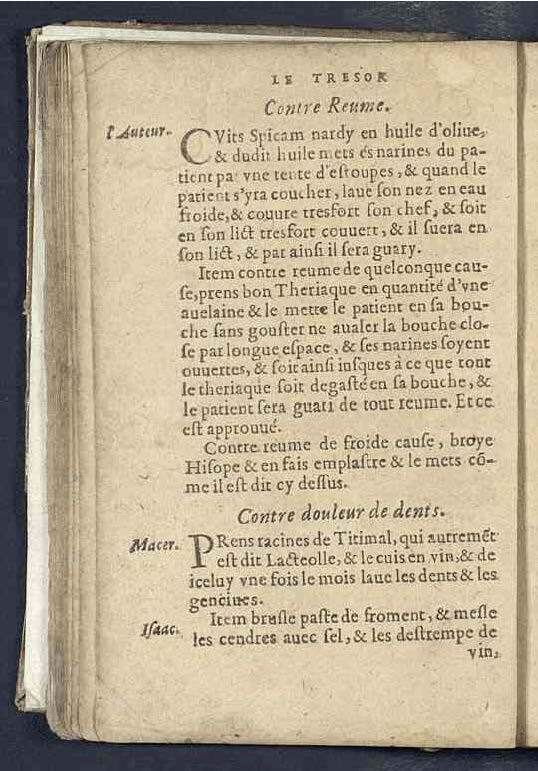 LE TRESOR
Contre Reume.
l'Auteur.
CVits Spicam nardy en huile d'oliue,
& dudit huile mets és narines du pa-
tient par vne tente d'estoupes, & quand le
patient s'yra coucher, laue son nez en eau
froide, & couure tresfort son chef, & soit
en son lict tresfort couuert, & il suera en
son lict, & par ainsi il sera guary.
Item contre reume de quelconque cau-
se, prens bon Theriaque en quantité d'vne
auelaine & le mette le patient en sa bou-
che sans gouster ne aualer la bouche clo-
se par longue espace, & ses narines soyent
ouuertes, & soit ainsi iusques à ce que tout
le theriaque soit degasté en sa bouche, &
le patient sera guari de tout reume. Et ce
est approuué.
Contre reume de froide cause, broye
Hisope & en fais emplastre & le mets cõ-
me il est dit cy dessus.
Contre douleur de dents.
Macer.
PRens racines de Titimal, qui autremẽt
est dit Lacteolle, & le cuis en vin, & de
iceluy vne fois le mois laue les dents & les
genciues.
Isaac.
Item brusle paste de froment, & mesle
les cendres auec sel, & les destrempe de
vin,